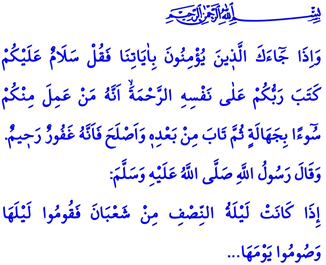 بِسْمِ اللهِ الرَّحْمٰنِ الرَّحِيمِ
وَاِذَا جَٓاءَكَ الَّذ۪ينَ يُؤْمِنُونَ بِاٰيَاتِنَا فَقُلْ سَلَامٌ عَلَيْكُمْ
كَتَبَ رَبُّكُمْ عَلٰى نَفْسِهِ الرَّحْمَةَۙ اَنَّهُ مَنْ عَمِلَ مِنْكُمْ
سُٓوءًا بِجَهَالَةٍ ثُمَّ تَابَ مِنْ بَعْدِه۪ وَاَصْلَحَ فَاَنَّهُ غَفُورٌ رَح۪يمٌ.
وَقَالَ رَسُولُ اللَّهِ صَلَّى اللَّهُ عَلَيْهِ وَسَلَّمَ:
إِذَا كَانَتْ لَيْلَةُ النِّصْفِ مِنْ شَعْبَانَ فَقُومُوا لَيْلَهَا
وَصُومُوا يَوْمَهَا...